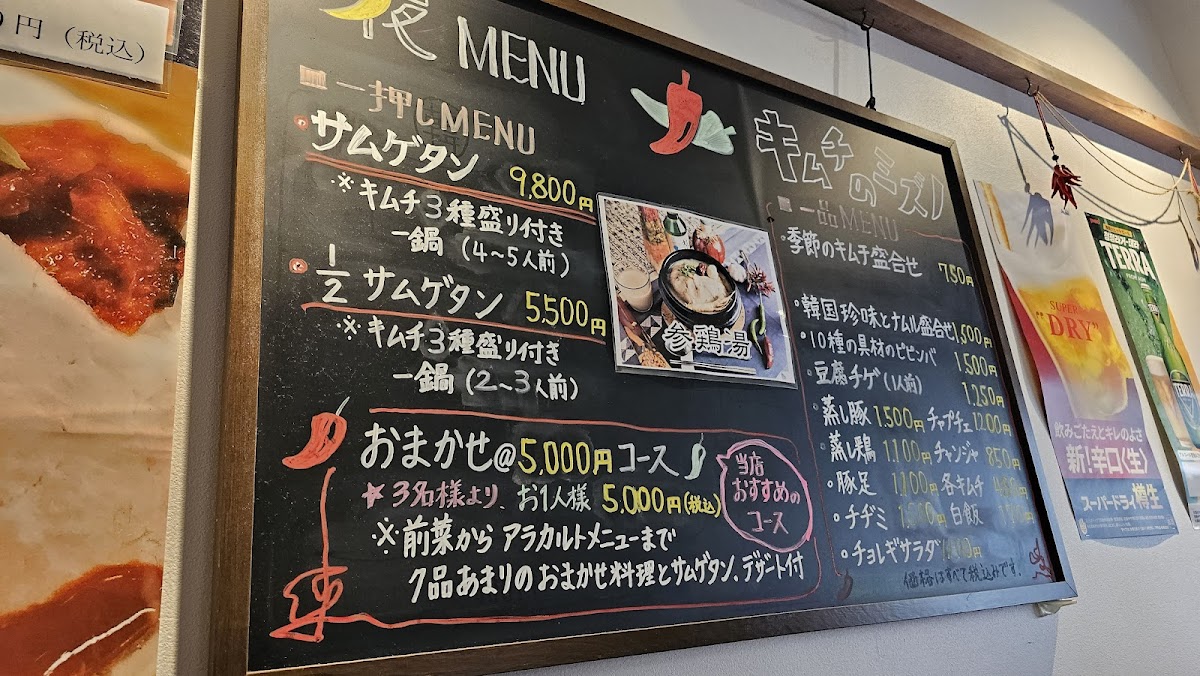 0円(税込)
夜 MENU
一押しMENU
サムゲタン 9,800円
※キムチ3種盛り付き
一鍋 (4〜5人前)
1/2 サムゲタン 5,500円
※キムチ3種盛り付き
一鍋 (2〜3人前)
参鶏湯
おまかせ@5,000円コース
★3名様より、お1人様 5,000円(税込)
※前菜から アラカルトメニューまで
7品あまりのおまかせ料理とサムゲタン、デザート付
当店
おすすめの
コース
キムチ
のミズノ
一品MENU
・季節のキムチ盛合せ 750円
・韓国珍味とナムル盛合せ 1,500円
・10種の具材のビビンバ 1,500円
・豆腐チゲ(1人前) 1,250円
・蒸し豚 1,500円 チャプチェ 1200円
・蒸し鶏 1,100円 チャンジャ 850円
・豚足 1,100円 各キムチ
・チヂミ 白飯
・チョレギサラダ
価格はすべて税込みです。
SUPER
"DRY"
飲みごたえとキレのよさ
新!辛口〈生〉
スーパードライ 樽生
TERRA